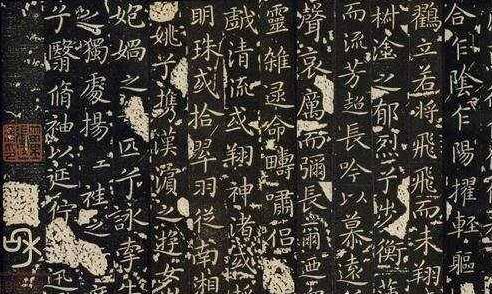 合乍陰乍陽擢輕軀
鶴立若將飛飛而未翔
椒塗之郁烈兮步衡薄
而流芳超長吟以慕遠
聲哀厲而彌長爾迺
靈雜遝命疇嘯侶
戲清流或翔神渚或採
明珠或拾翠羽從南湘
姚兮攜漢濱之遊女
妃媧之匹兮詠牽牛
之獨處揚輕袿之
兮翳脩袖以延佇迅